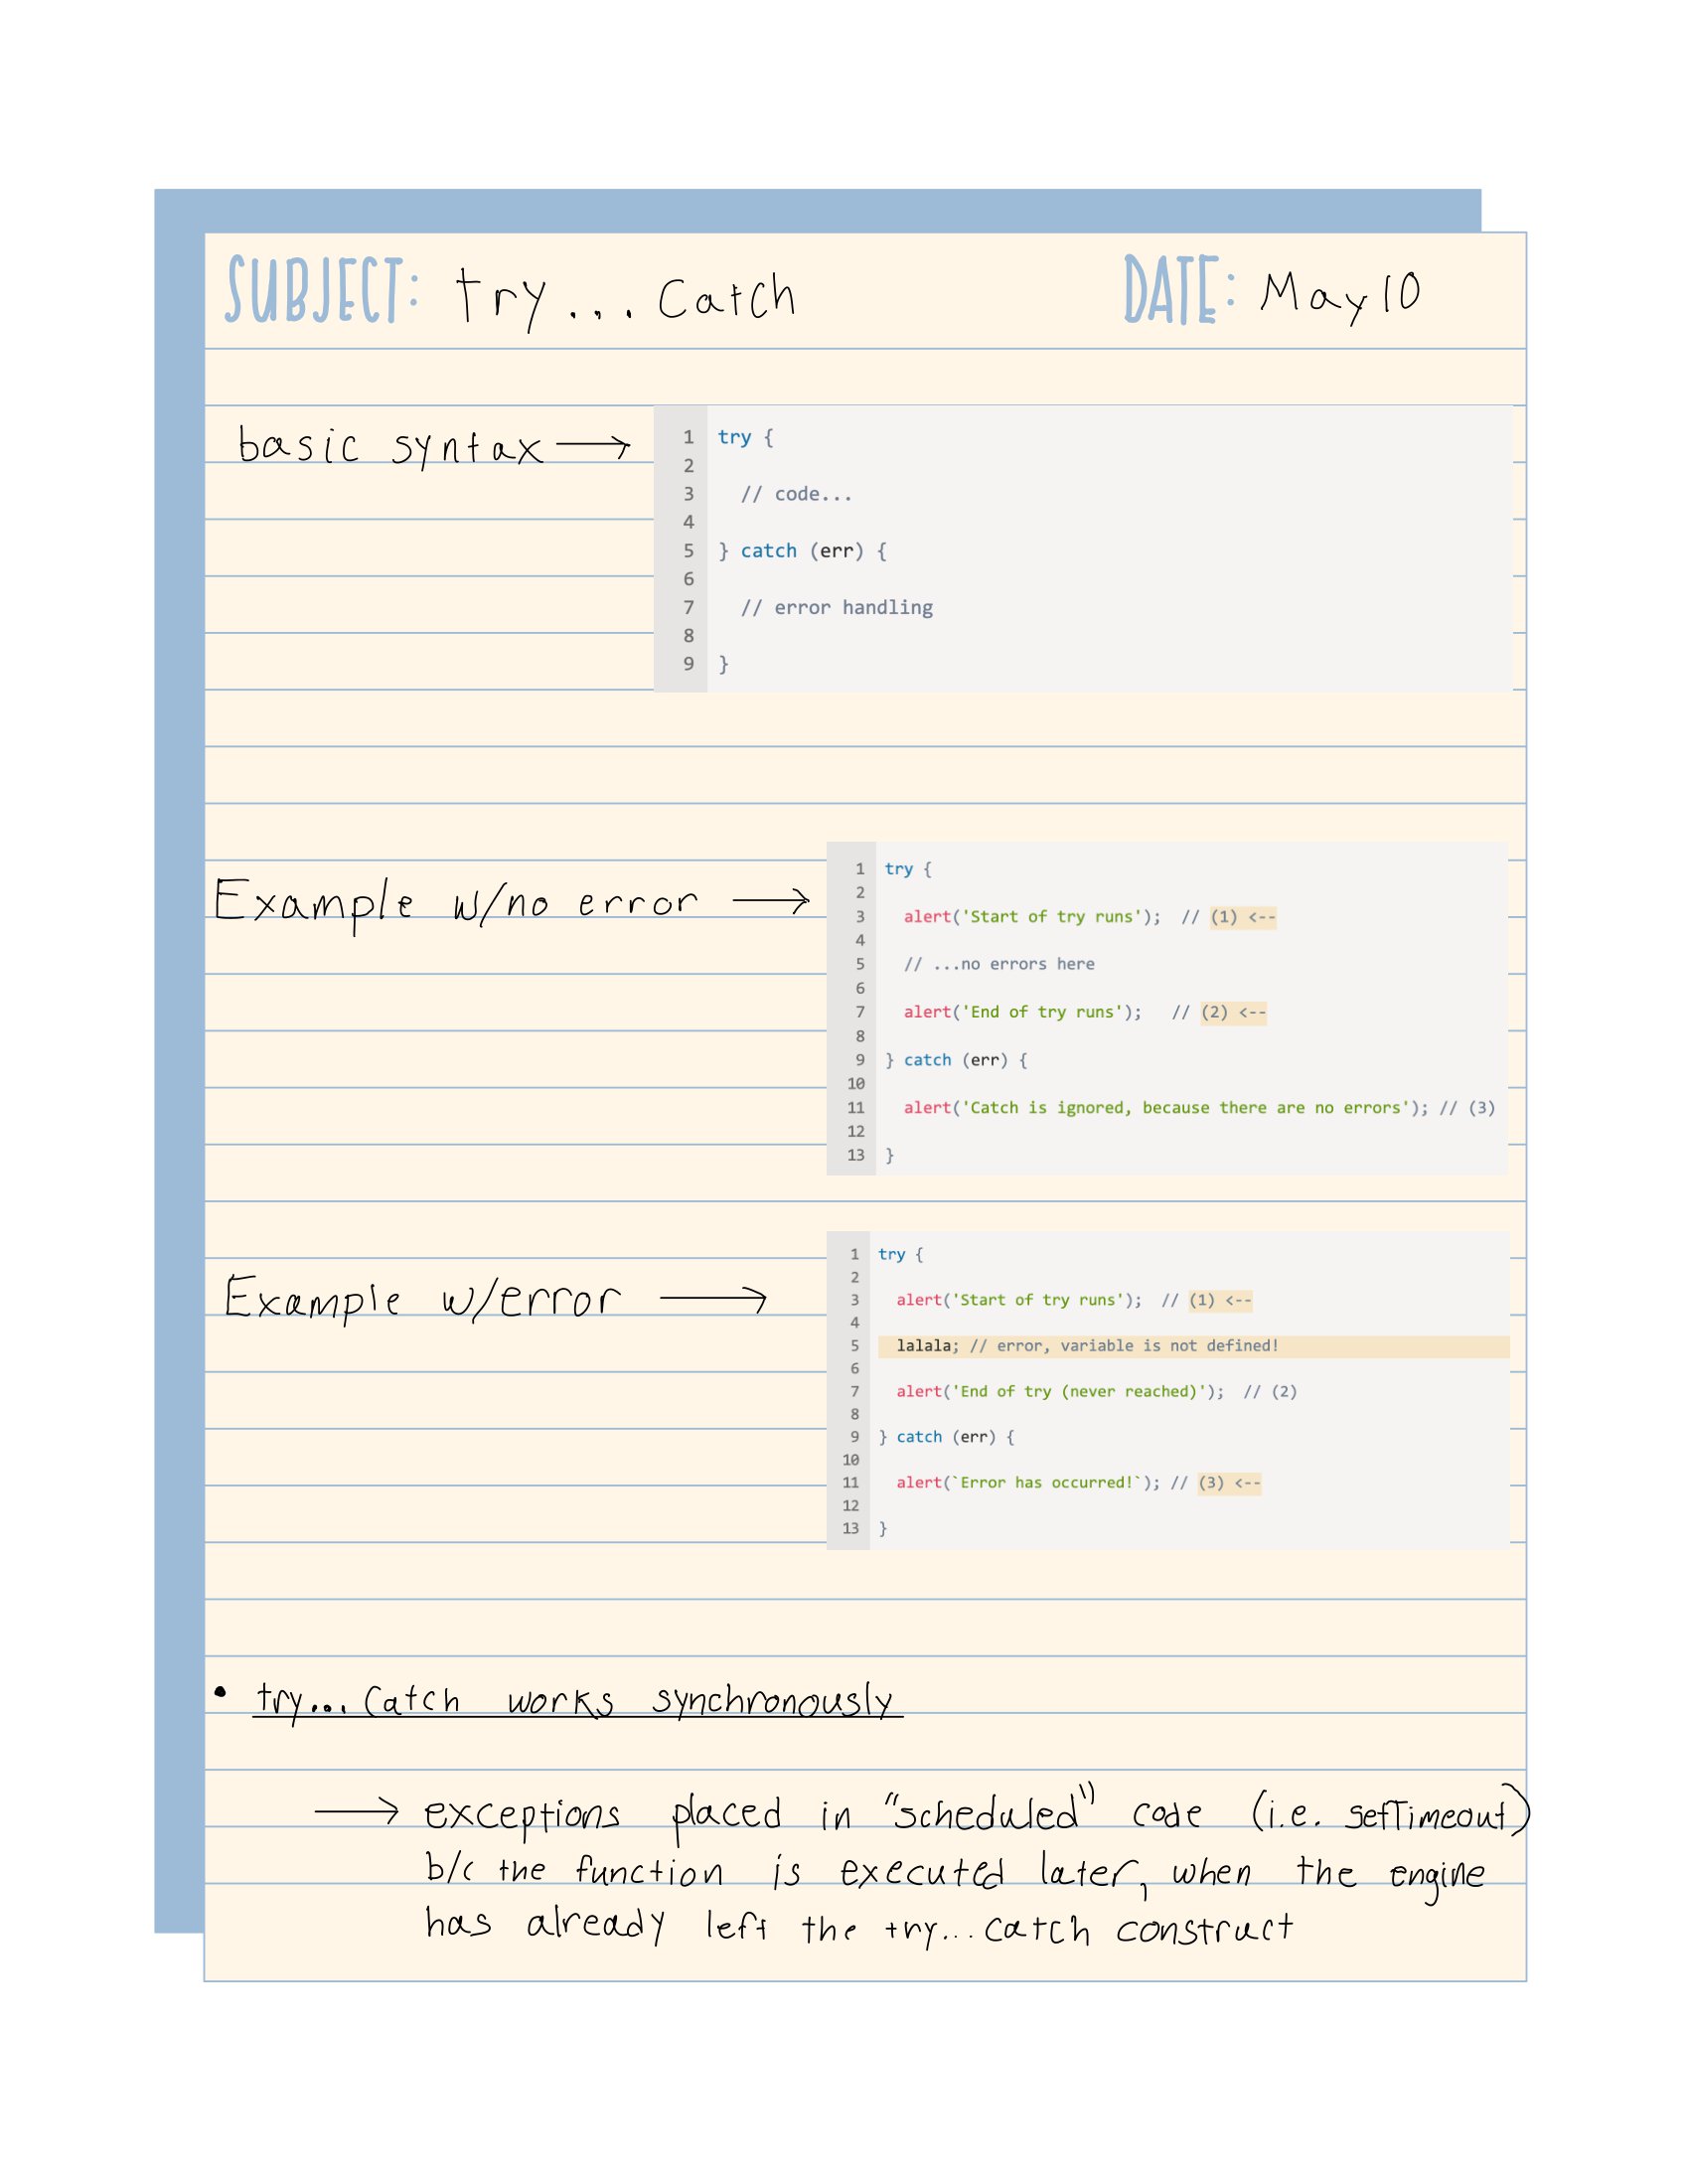 SUBJECT: try... Catch DATE: May 10
basic syntax →
1 try {
2
3   // code...
4
5 } catch (err) {
6
7   // error handling
8
9 }
Example w/no error →
1 try {
2
3   alert('Start of try runs');  // (1) <--
4
5   // ...no errors here
6
7   alert('End of try runs');   // (2) <--
8
9 } catch (err) {
10
11   alert('Catch is ignored, because there are no errors'); // (3)
12
13 }
Example w/error →
1 try {
2
3   alert('Start of try runs');  // (1) <--
4
5   lalala; // error, variable is not defined!
6
7   alert('End of try (never reached)');  // (2)
8
9 } catch (err) {
10
11   alert(`Error has occurred!`); // (3) <--
12
13 }
• try... Catch works synchronously
→ exceptions placed in "scheduled" code (i.e. setTimeout)
b/c the function is executed later, when the engine
has already left the try...catch construct